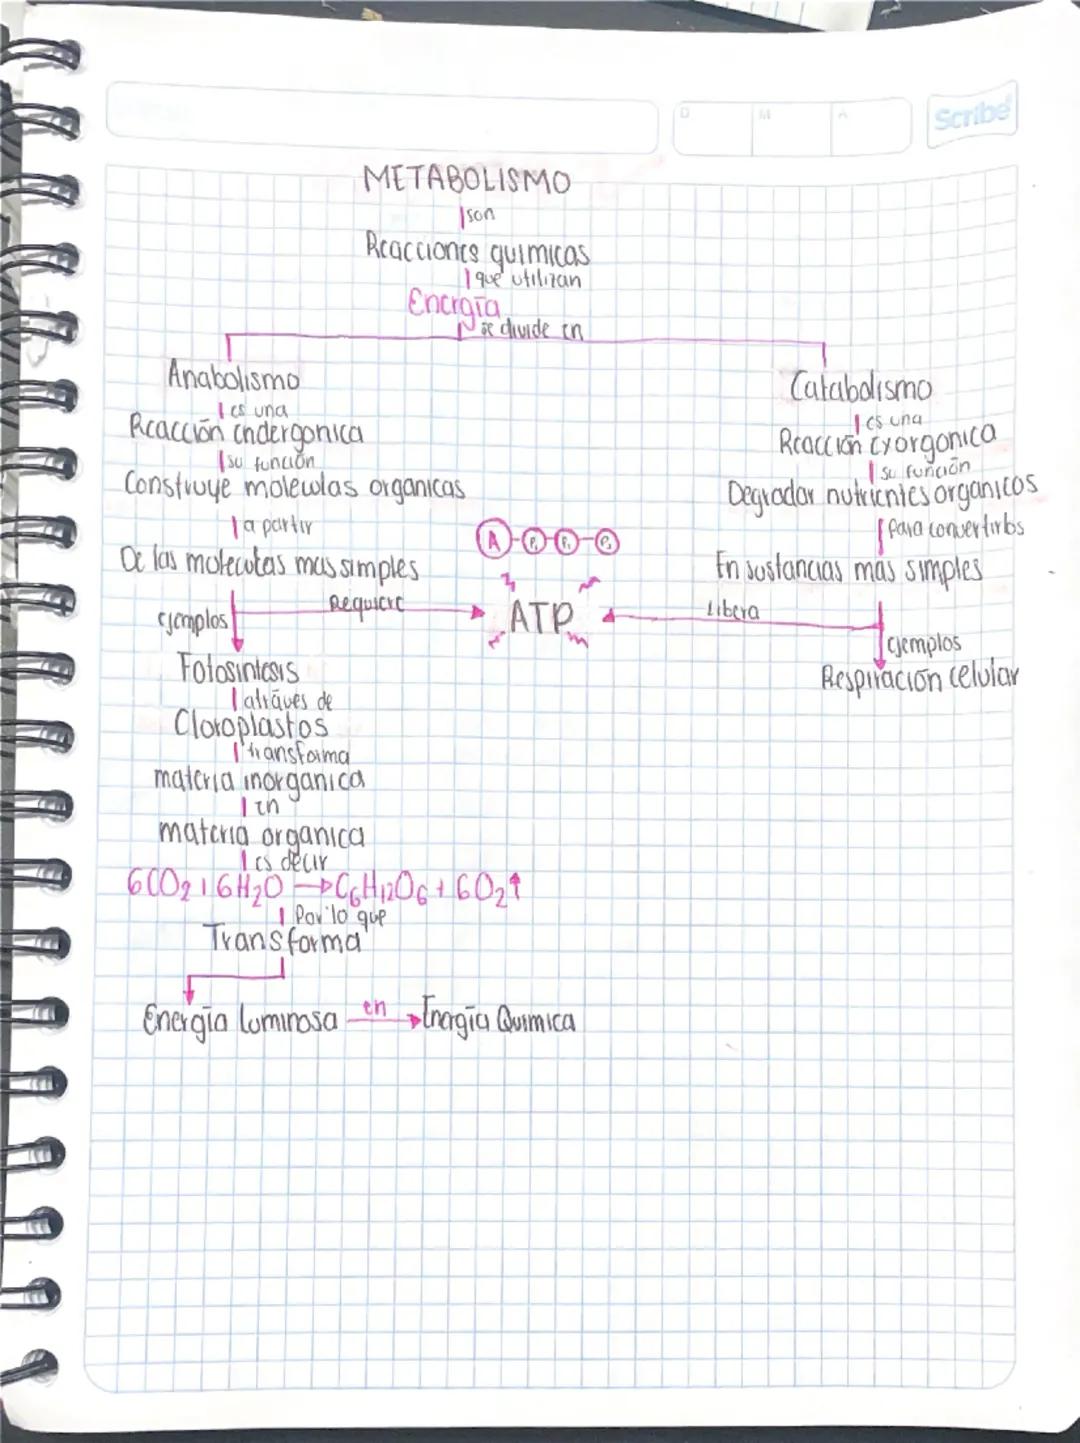 D M A
Scribe
METABOLISMO
son
Reacciones quimicas
que utilizan
Energīa
se divide en
Anabolismo
es una
Reacción endergonica
su función
Construye moleculas organicas
a partir
De las moleculas mas simples
Requiere
ejemplos
Fotosintesis
através de
Cloroplastos
transforma
materia inorganica
en
materia organica
es decir
6CO2 + 6H2O → C6H12O6 + 6O2↑
Por lo que
Transforma
Energīa luminosa en Energīa Quimica
A P1 P1 P3
ATP
Catabolismo
es una
Reacción exorgonica
su función
Degradar nutrientes organicos
para convertirlos
En sustancias mas simples
Libera
ejemplos
Respiración celular